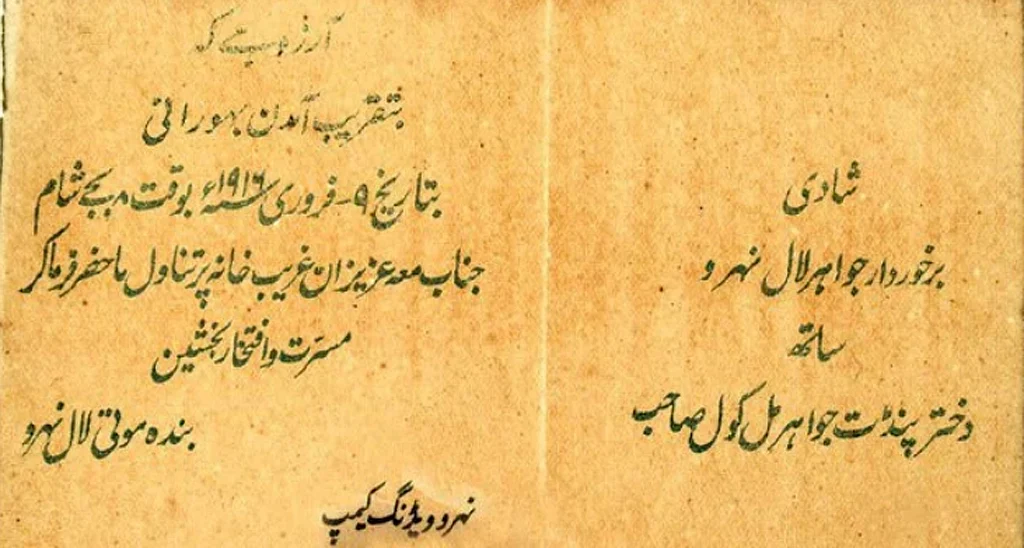 شادی
برخوردار جواہر لال نہرو
ساتھ
دختر پنڈت جواہر مل کول صاحب
آرزو ہے کہ
بتقریب آمدن بہورانی
بتاریخ ۹-فروری ۱۹۱۶ء بوقت ۸ بجے شام
جناب معہ عزیزان غریب خانہ پر تناول ماحضر فرما کر
مسرّت و افتخار بخشیں
بندہ موتی لال نہرو
نہرو ویڈنگ کیمپ